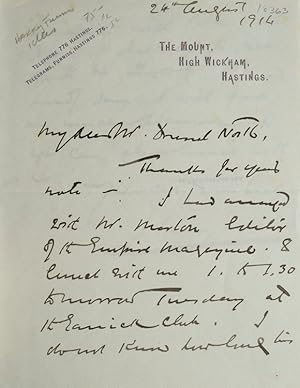 24th August
1914
10363
75-
Telephone 776 Hastings.
Telegrams, Furniss, Hastings 776.
The Mount,
High Wickham,
Hastings.
My dear Mr.
Thanks for your
note — I had arranged
with Mr. Morton Editor
of the Empire Magazine to
lunch with me 1. to 1.30
tomorrow Tuesday at
the Garrick Club. I
do not know how long his